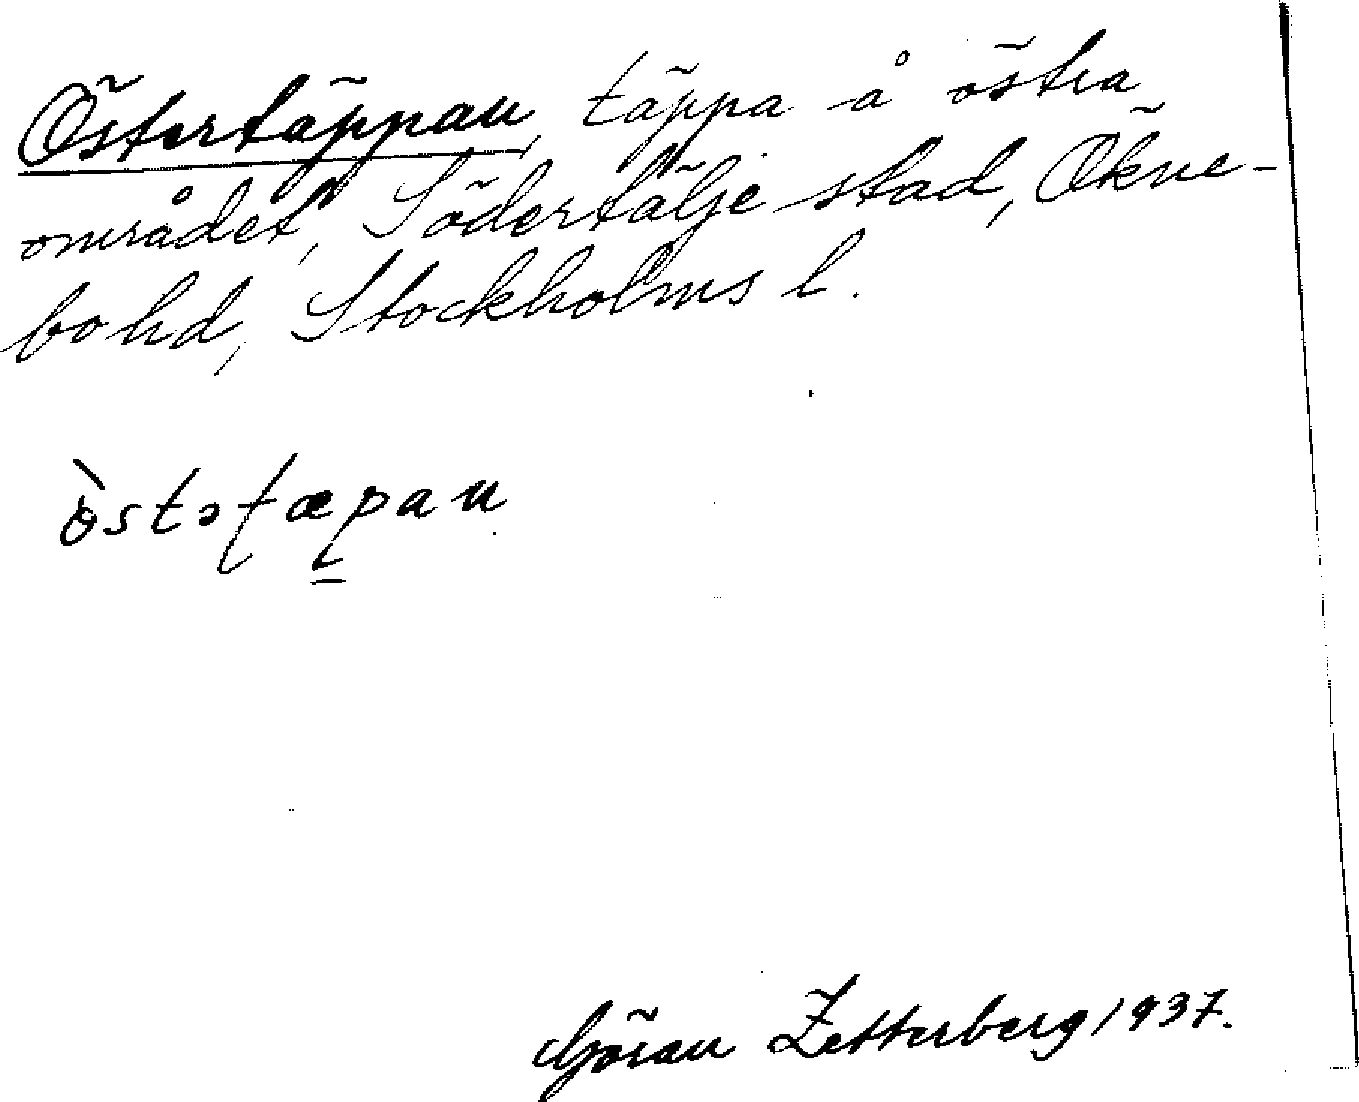 Östertäppan, täppa å östra
området, Södertälje stad, Økne-
bo hd, Stockholms l.
Göran Zetterberg 1937.